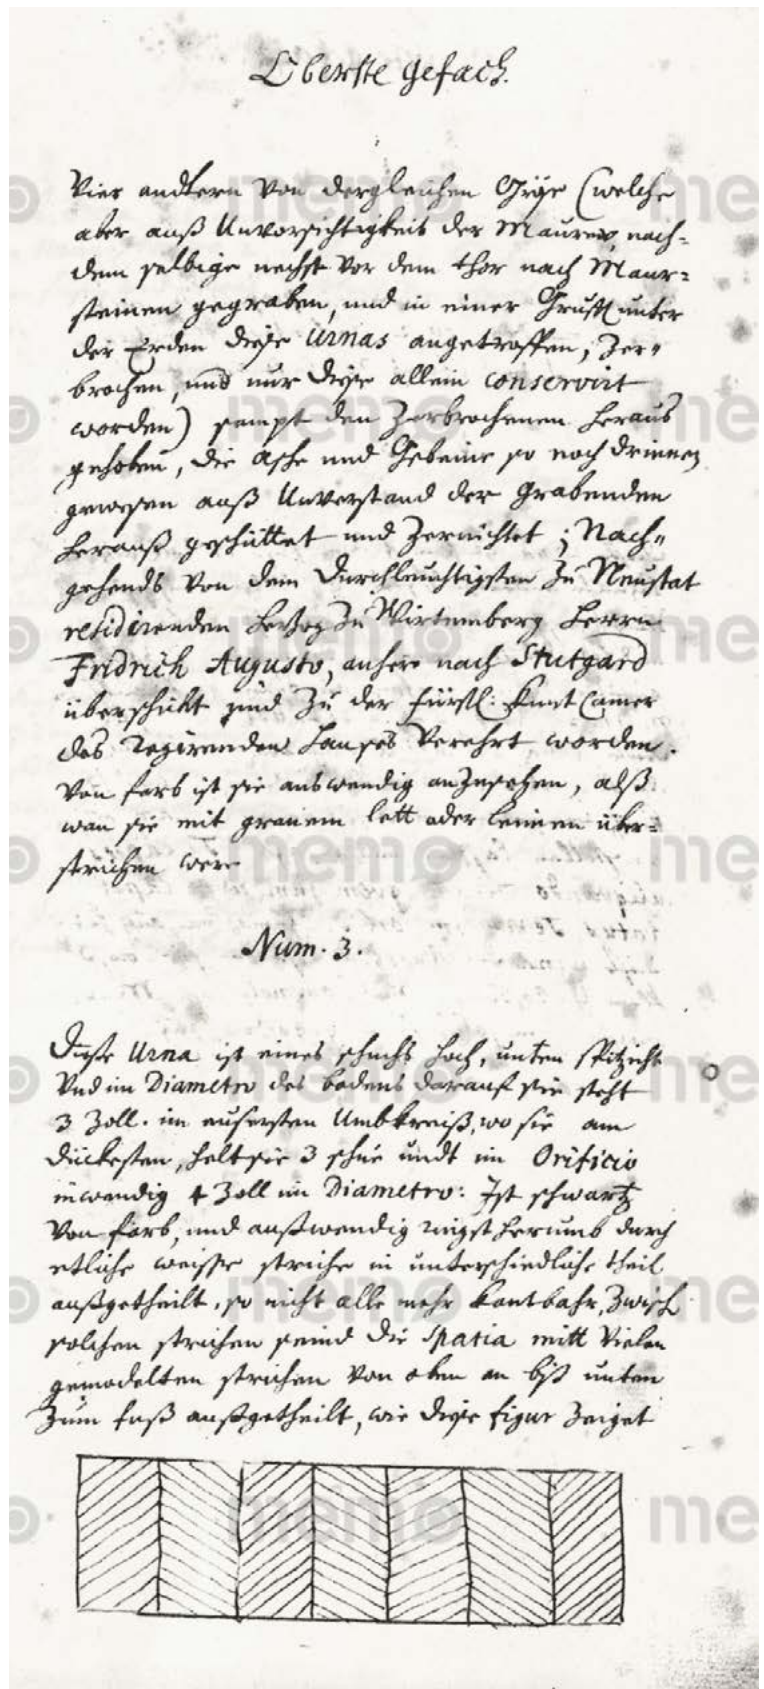 Oberste gefach.
Vier andtern von dergleichen Größe (welche
aber auß Unvorsichtigkeit der Maurer, nach-
dem selbige nechst vor dem thor nach Maur-
steinen gegraben, und in einer Grufft unter
der Erden diese Urnas angetroffen, Zer-
brochen, und nur diese allein conservirt
worden) sampt den Zerbrochenen heraus
gehoben, die Asche und Gebeine so noch drinnen
gewesen auß Unverstand der Grabenden
herauß geschüttet und Zernichtet; Nach-
gehends von dem Durchleuchtigsten Zu Neustat
residirenden Hertzog Zu Wirtemberg Herrn
Fridrich Augusto, anhero nach Stutgard
überschikt und Zu der fürstl: Kunst Camer
des Regirenden Hauses Verehrt worden.
Von farb ist sie auswendig anzusehen, alß
wan sie mit grauem lett oder leimen über-
strichen were
Num. 3.
Diese Urna ist eines schuchs hoch, unten spitzicht
Und im Diametro des bodens darauf sie steht
3 Zoll. im eusersten Umbkreiß, wo sie am
dückesten, helt sie 3 schue undt im Orificio
inwendig 4 Zoll im Diametro: Ist schwartz
Von farb, und außwendig ringst herumb durch
etliche weisse striche in unterschiedliche theil
außgetheilt, so nicht alle mehr kantbahr, Zwisch
solchen strichen seind die Spatia mitt vielen
gemodelten strichen von oben an biß unten
Zum fuß außgetheilt, wie diese figur Zeiget
memo